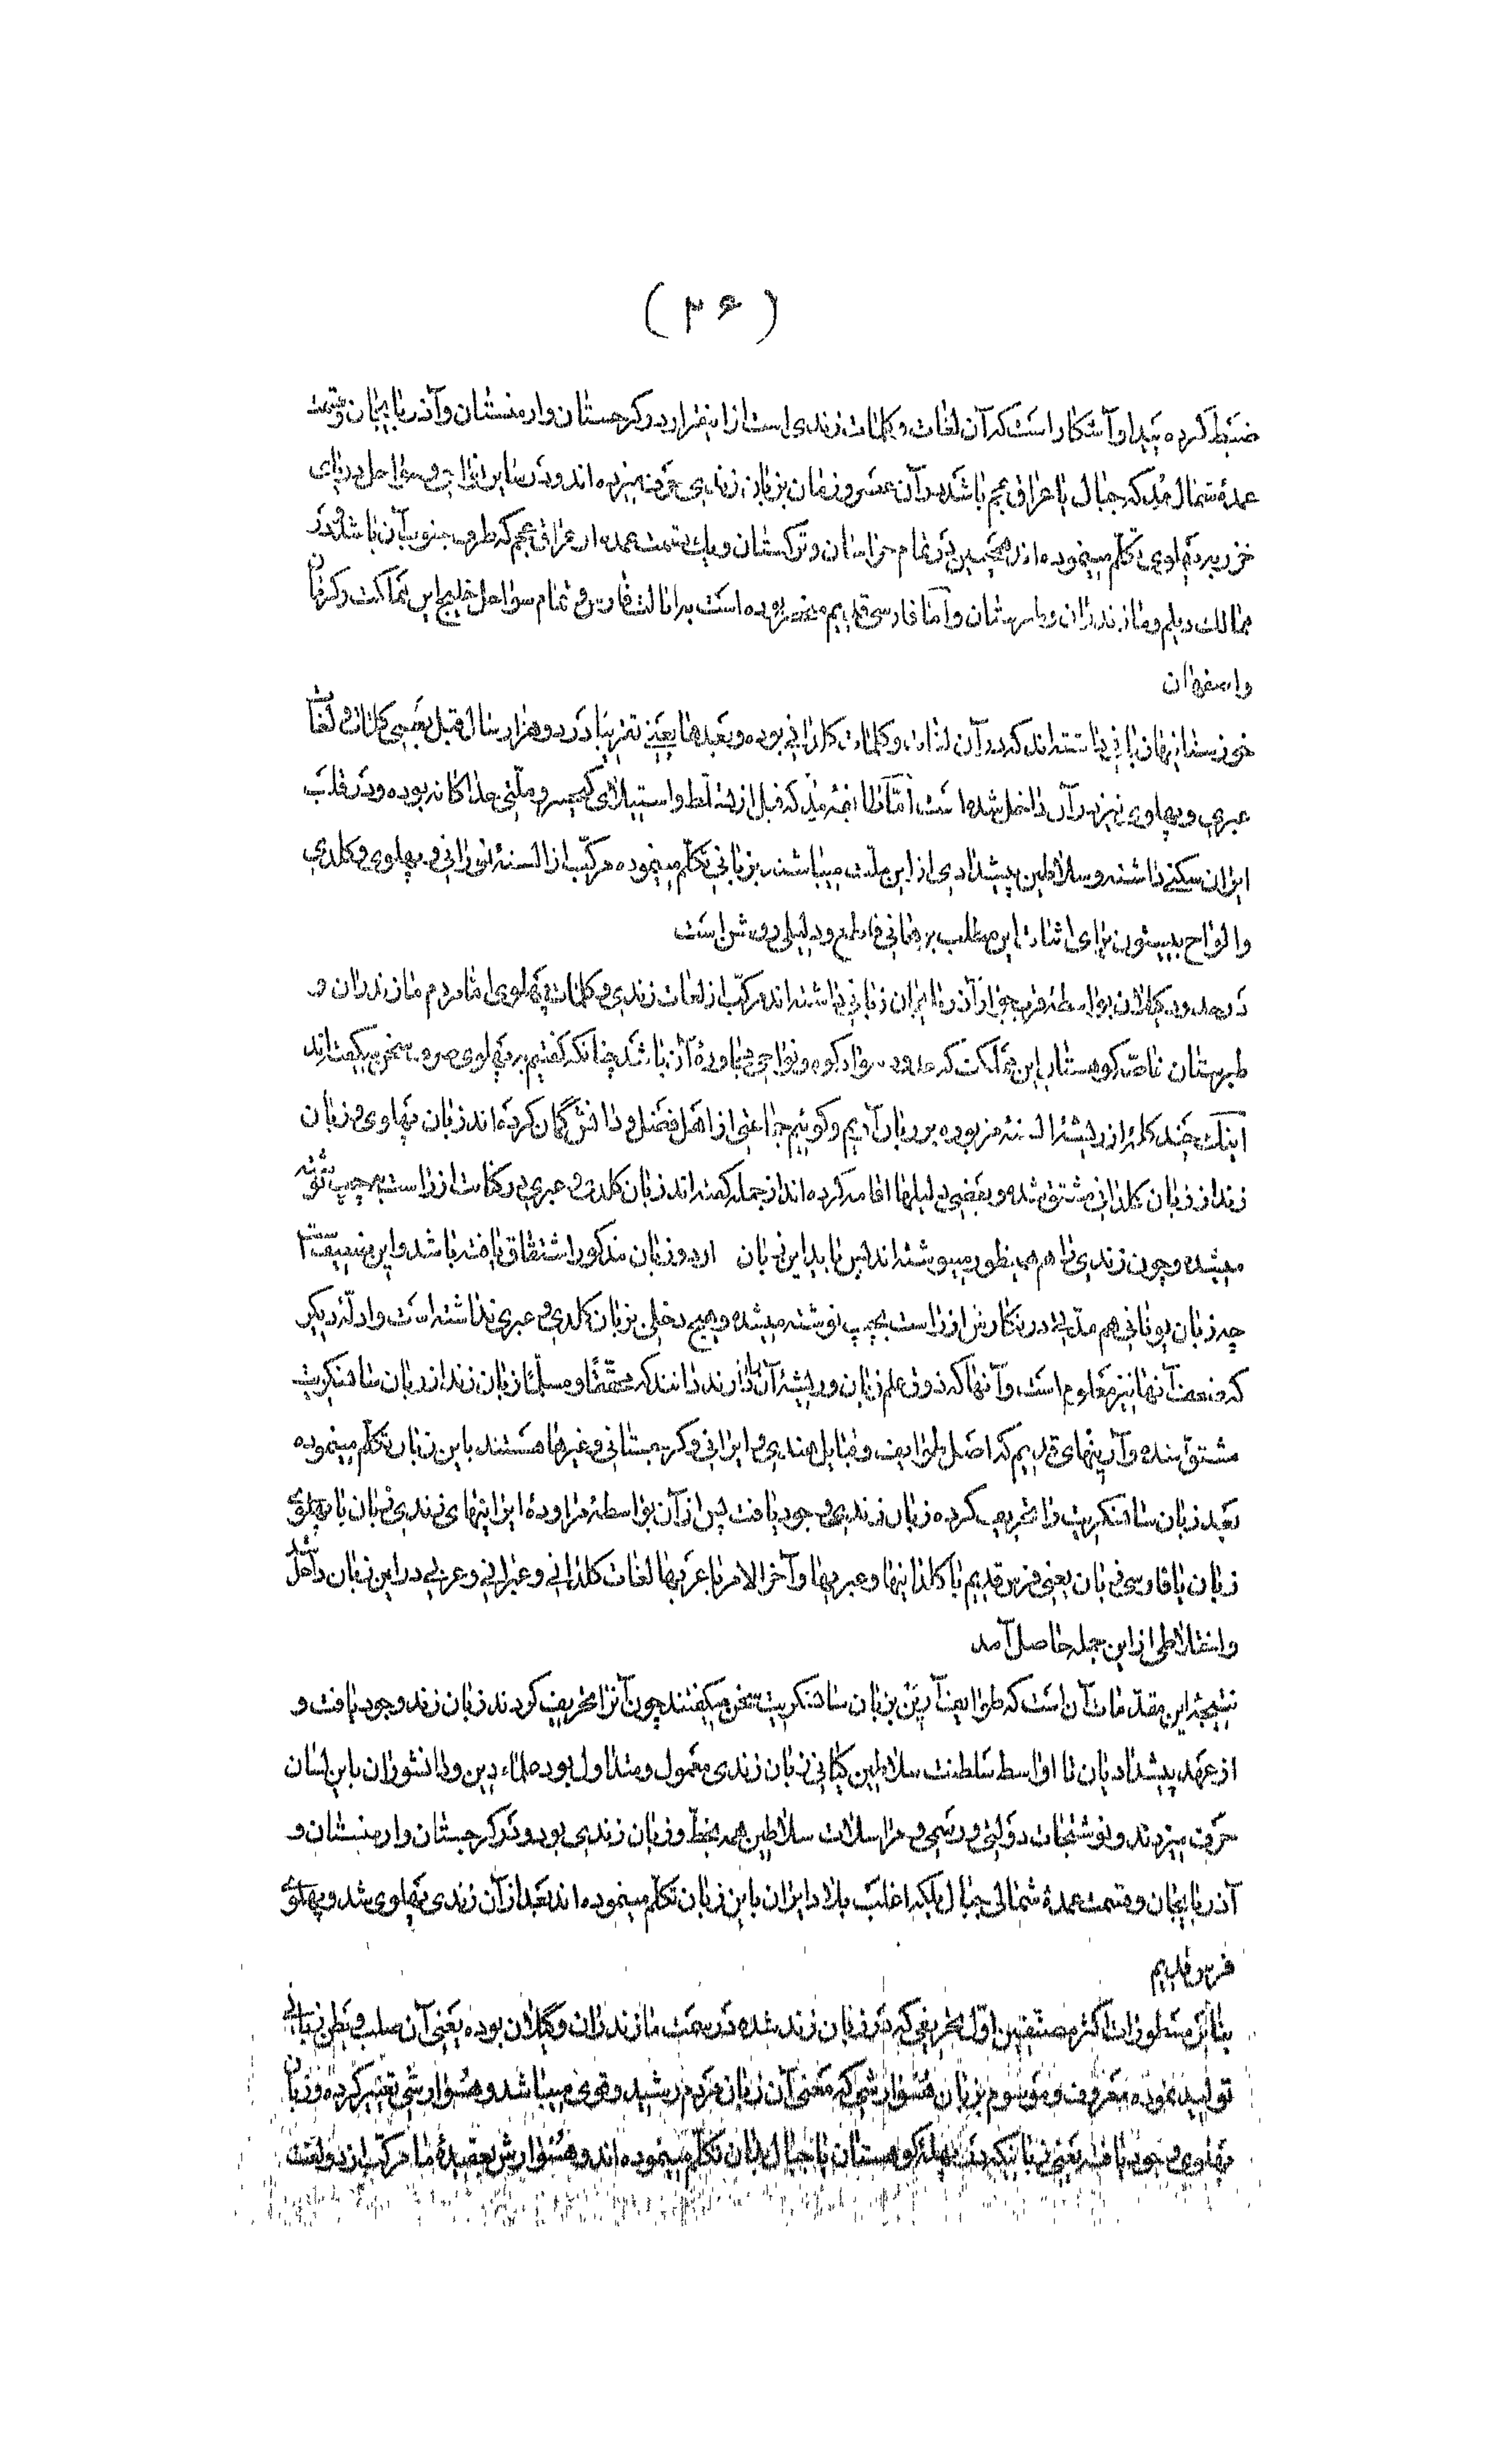 ( ۳۶ )
ضبط کرده پیدا و آشکار است که آن لغات و کلمات زندی است از اینقرار در کرجستان و ارمنستان و آذربایجان و قسمت
عمدۀ شمال مد که جبال یا عراق عجم باشد در آن عصر و زمان بزبان زندی حرف میزده اند و در سایر نواحی و سواحل دریای
خزر بپهلوی تکلم مینموده اند همچنین در تمام خراسان و ترکستان و یک قسمت عمده از عراق عجم که طرف جنوب آن باشد و در
ممالک دیلم و مازندران و طبرستان و اما فارسی قدیم منحصر بوده است بایالت فارس و تمام سواحل خلیج این مملکت و کرمان
و اصفهان
خوزستانیها زبانی داشته اند که در آن لغات و کلمات کلدانی بوده و بعدها یعنی تقریبا در دو هزار سال قبل بعضی کلمات و لغات
عبری و پهلوی نیز در آن داخل شده است اما طایفۀ مد که قبل از تسلط و استیلای کیخسرو ملتی جداگانه بوده و در قلب
ایران سکنی داشته و سلاطین پیشدادی از این ملت میباشند بزبانی تکلم مینموده مرکب از السنۀ تورانی و پهلوی و کلدی
و الواح بیستون برای اثبات این مطلب برهانی قاطع و دلیلی روشن است
در حدود گیلان بواسطۀ قرب جوار آذربایجان زبانی داشته اند مرکب از لغات زندی و کلمات پهلوی اما مردم مازندران و
طبرستان خاصه کوهستان این مملکت که حدود سوادکوه و نواحی مجاورۀ آن باشد چنانکه گفتیم به پهلوی صرف سخن میگفته اند
اینک چند کلمه از ریشۀ السنۀ مزبوره بر زبان آریم و گوئیم جماعتی از اهل فضل و دانش گمان کرده اند زبان پهلوی و زبان
زند از زبان کلدانی مشتق شده و بعضی دلیلها اقامه کرده اند از جمله گفته اند زبان کلدی و عبری در کتابت از راست بچپ نوشته
میشده و چون زندی را هم همینطور مینوشته اند پس باید این زبان از دو زبان مذکور اشتقاق یافته باشد و این نیست
چه زبان یونانی هم مدتی در نگارش از راست بچپ نوشته میشده و هیچ دخلی بزبان کلدی و عبری نداشته است و ادلۀ دیگر
که ضعف آنها نیز معلوم است و آنها که ذوق علم زبان و ریشۀ آن را دارند دانند که محققا و مسلما زبان زند از زبان سانسکریت
مشتق شده و آرینهای قدیم که اصل طوایف و قبایل هندی و ایرانی و کرجستانی و غیرها هستند باین زبان تکلم مینموده
بعد زبان سانسکریت را تحریف کرده زبان زندی وجود یافت پس از آن بواسطۀ مراودۀ ایرانیهای زندی زبان یا پهلوی
زبان یا فارسی زبان یعنی فرس قدیم با کلدانیها و عبریها و آخر الامر با عربها لغات کلدانی و عبرانی و عربی در این زبان داخل شد
و اختلاطی از این جمله حاصل آمد
نتیجۀ این مقدمات آن است که طوایف آرین بزبان سانسکریت سخن میگفتند چون آنرا تحریف کردند زبان زند وجود یافت و
از عهد پیشدادیان تا اواسط سلطنت سلاطین کیانی زبان زندی معمول و متداول بوده علماء دین و دانشوران باین لسان
حرف میزدند و نوشتجات دولتی و رسمی و مراسلات سلاطین همه بخط و زبان زندی بود و در کرجستان و ارمنستان و
آذربایجان و قسمت عمدۀ شمالی جبال بلکه اغلب بلاد ایران باین زبان تکلم مینموده اند بعد از آن زندی پهلوی شد و پهلوی
فرس قدیم
بنا بر مسطورات اکثر مصنفین اول تحریفی که در زبان زند شده در سمت مازندران و گیلان بوده یعنی آن صلب و بطن زبانی
تولید نموده معروف و موسوم بزبان هُسوارشی که معنی آن زبان مردم رشید و قوی میباشد و هسوارشی تغییر کرده و زبان
پهلوی وجود یافته یعنی زبانیکه در پهله کوهستان یا جبال بدان تکلم مینموده اند و هسوارش بعقیدۀ ما مرکب از دو لغت